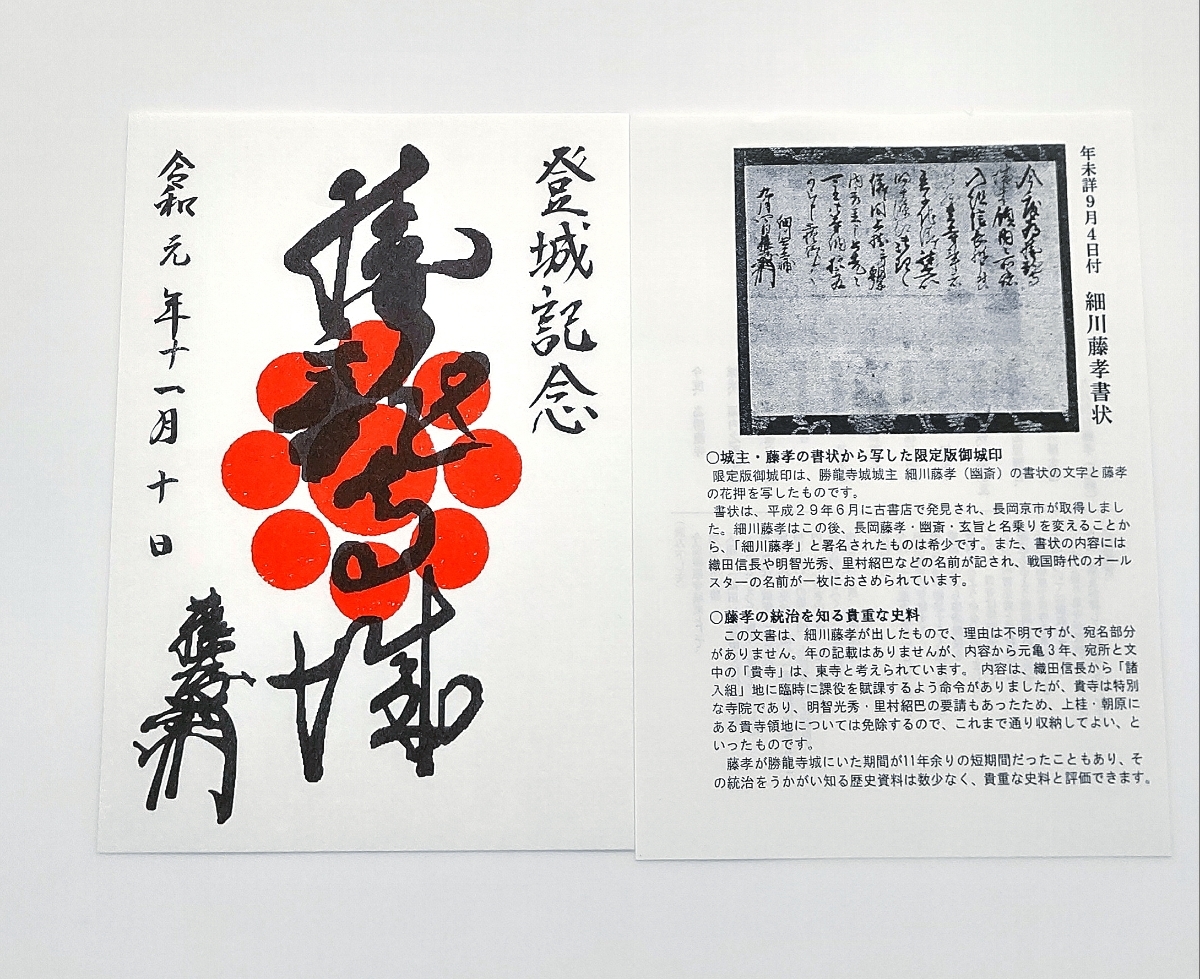 登城記念
勝龍寺城
令和元年十一月十日
藤孝
年未詳9月4日付 細川藤孝書状
○城主・藤孝の書状から写した限定版御城印
限定版御城印は、勝龍寺城城主 細川藤孝（幽斎）の書状の文字と藤孝
の花押を写したものです。
書状は、平成２９年６月に古書店で発見され、長岡京市が取得しまし
た。細川藤孝はこの後、長岡藤孝・幽斎・玄旨と名乗りを変えることか
ら、「細川藤孝」と署名されたものは希少です。また、書状の内容には
織田信長や明智光秀、里村紹巴などの名前が記され、戦国時代のオール
スターの名前が一枚におさめられています。
○藤孝の統治を知る貴重な史料
この文書は、細川藤孝が出したもので、理由は不明ですが、宛名部分
がありません。年の記載はありませんが、内容から元亀３年、宛所と文
中の「貴寺」は、東寺と考えられています。 内容は、織田信長から「諸
入組」地に臨時に課役を賦課するよう命令がありましたが、貴寺は特別
な寺院であり、明智光秀・里村紹巴の要請もあったため、上桂・朝原に
ある貴寺領地については免除するので、これまで通り収納してよい、と
いったものです。
藤孝が勝龍寺城にいた期間が11年余りの短期間だったこともあり、そ
の統治をうかがい知る歴史資料は数少なく、貴重な史料と評価できます。